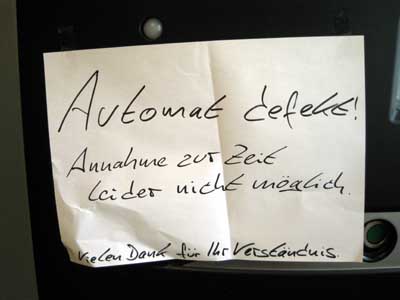 Automat defekt!
Annahme zur Zeit
leider nicht möglich.
Vielen Dank für Ihr Verständnis.